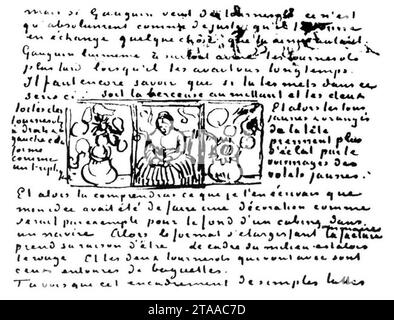 mais si Gauguin veut des tournesols ce n'est
qu'absolument comme de juste qu'il te donne
en échange quelque chose que tu aimes autant.
Gauguin lui même a surtout aimé les tournesols
plus tard lorsqu'il les avait vus longtemps.
Il faut encore savoir que si tu les mets dans ce
sens ci: soit la berceuse au milieu et les deux
toiles des
tournesols
à droite et à
gauche cela
forme
comme
un triptyque
Et alors les tons
jaunes & orangés
de la tête
prennent plus
d'éclat par le
voisinage des
volets jaunes.
Et alors tu comprendras ce que je t'en écrivais que
mon idée avait été de faire une décoration comme
serait par exemple pour le fond d'une cabine dans
un navire Alors le format s'élargissant la facture
sommaire
prend sa raison d'être. le cadre du milieu est alors
le rouge. Et les deux tournesols qui vont avec sont
ceux entourés de baguettes.
Tu vois que cet encadrement de simples lattes
alamy
Image ID: 2TAAC7D
www.alamy.com